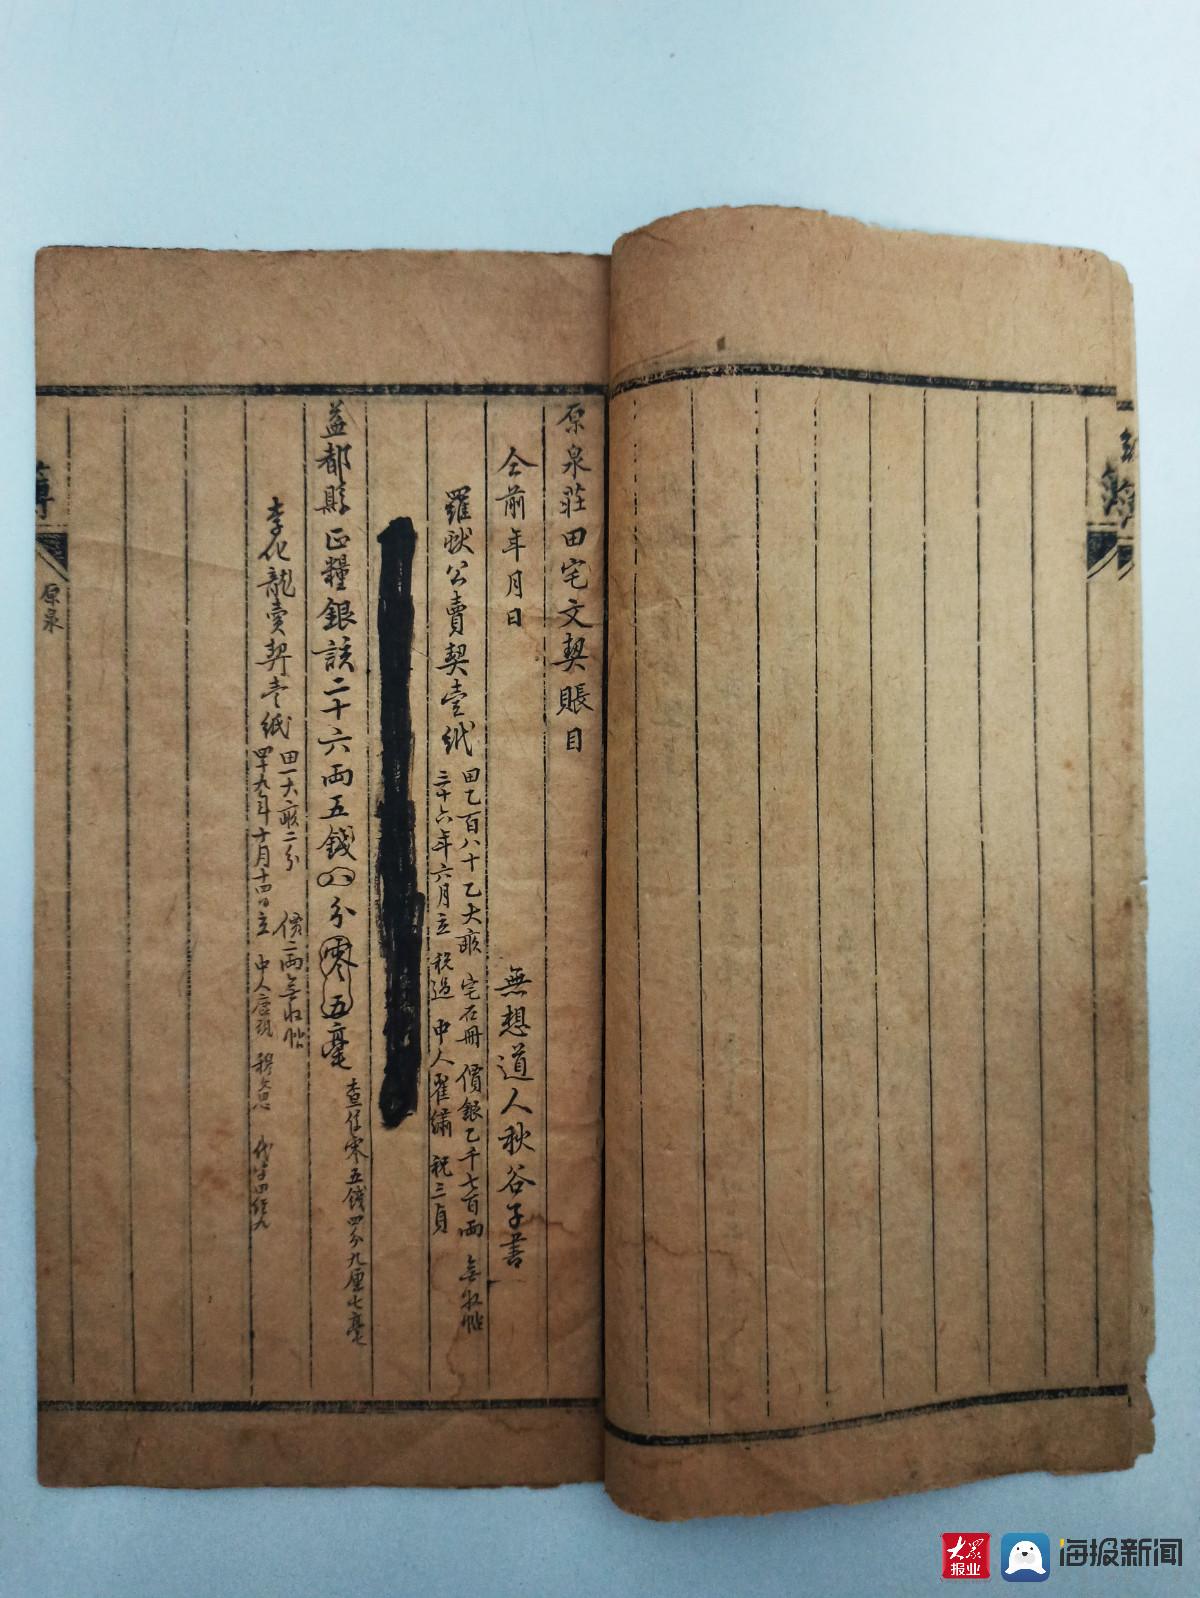 原泉莊田宅文契賬目
仝前年月日
無想道人秋谷子書
羅猷公賣契壹紙
田乙百八十乙大畝 宅在冊 價銀乙千七百兩 無收帖
三十六年六月立 稅過 中人翟繡 祝三貞
益都縣正糧銀該二十六兩五錢八分零五毫
五錢四分九厘七毫
李化龍賣契壱紙
田一大畝二分 價二兩無收帖
四十九年十月十四日立 中人
簿
原泉
大众报业
海报新闻